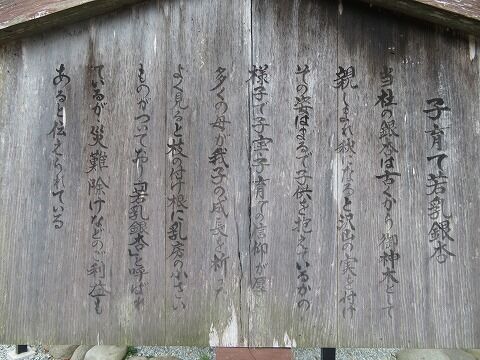 子育て若乳銀杏
当社の銀杏は古くから御神木として
親しまれ秋になると沢山の実を付け
その姿はまるで子供を抱えているかの
様子で子宝子育ての信仰が厚く
多くの母が我子の成長を祈った
よく見ると枝の付け根に乳房の小さい
ものがついて「若乳銀杏」と呼ばれ
ているが災難除けなどのご利益も
あると伝えられている